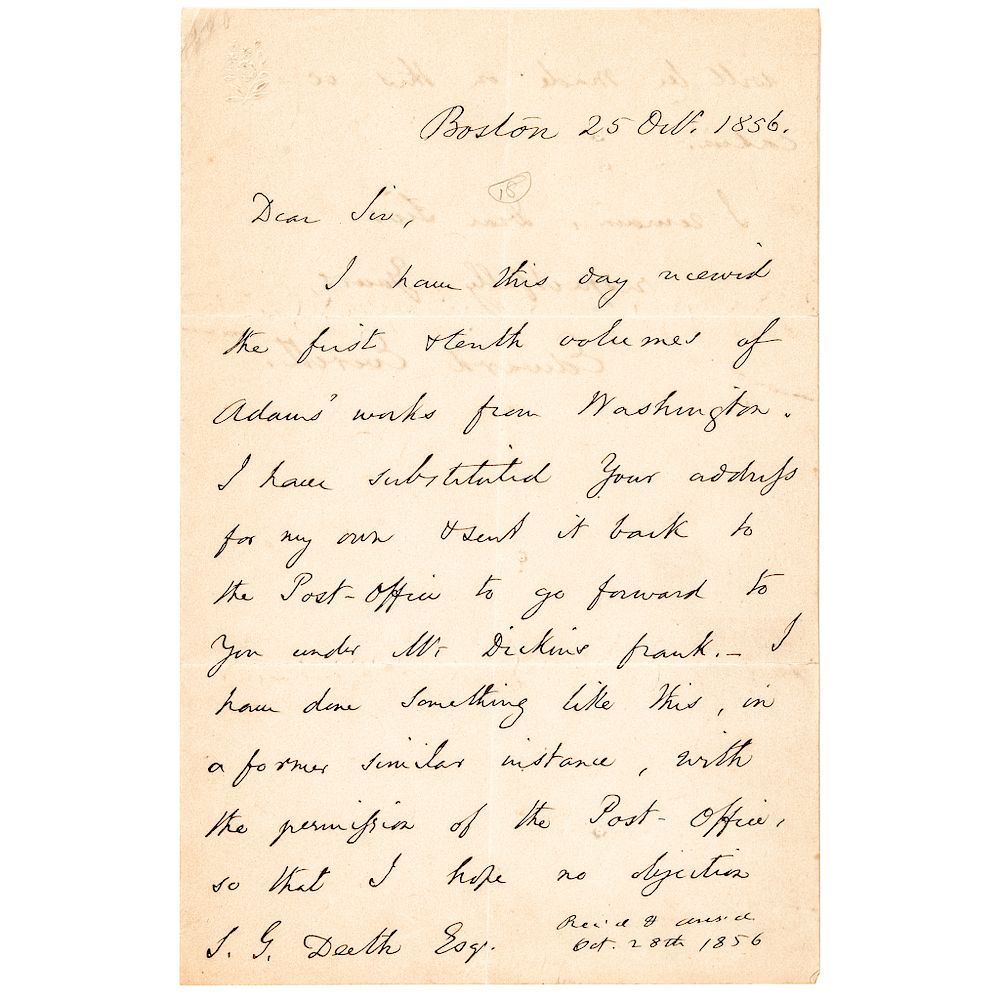 Boston 25 Oct. 1856.
18
Dear Sir,
I have this day received
the first & tenth volumes of
Adams' works from Washington.
I have substituted Your address
for my own & sent it back to
the Post-Office to go forward to
You under Mr Dickins frank. – I
have done something like this, in
a former similar instance, with
the permission of the Post-Office,
so that I hope no objection
S. G. Deeth Esqr.
Rec'd &
Oct. 28th 1856
will be made on this oc
casion.
I remain, Dear Sir,
Yours
Edward Everett.